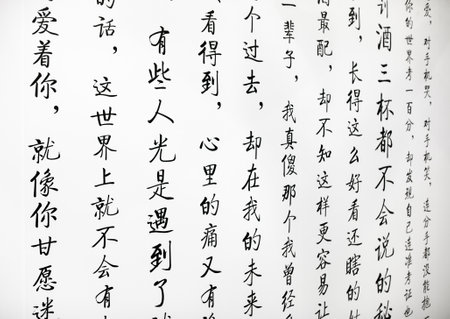 爱，对手机哭，对手机笑，连分手都没能挑
你的世界考一百分，却发现自己连准考证也
酒三杯都不会说的秘
到，长得这么好看还瞎的
最配，却不知这样更容易让
一辈子，我真傻那个我曾经
个过去，却在我的未来
看得到，心里的痛又有
有些人光是遇到了
的话，这世界上就不会有
爱着你，就像你甘愿迷